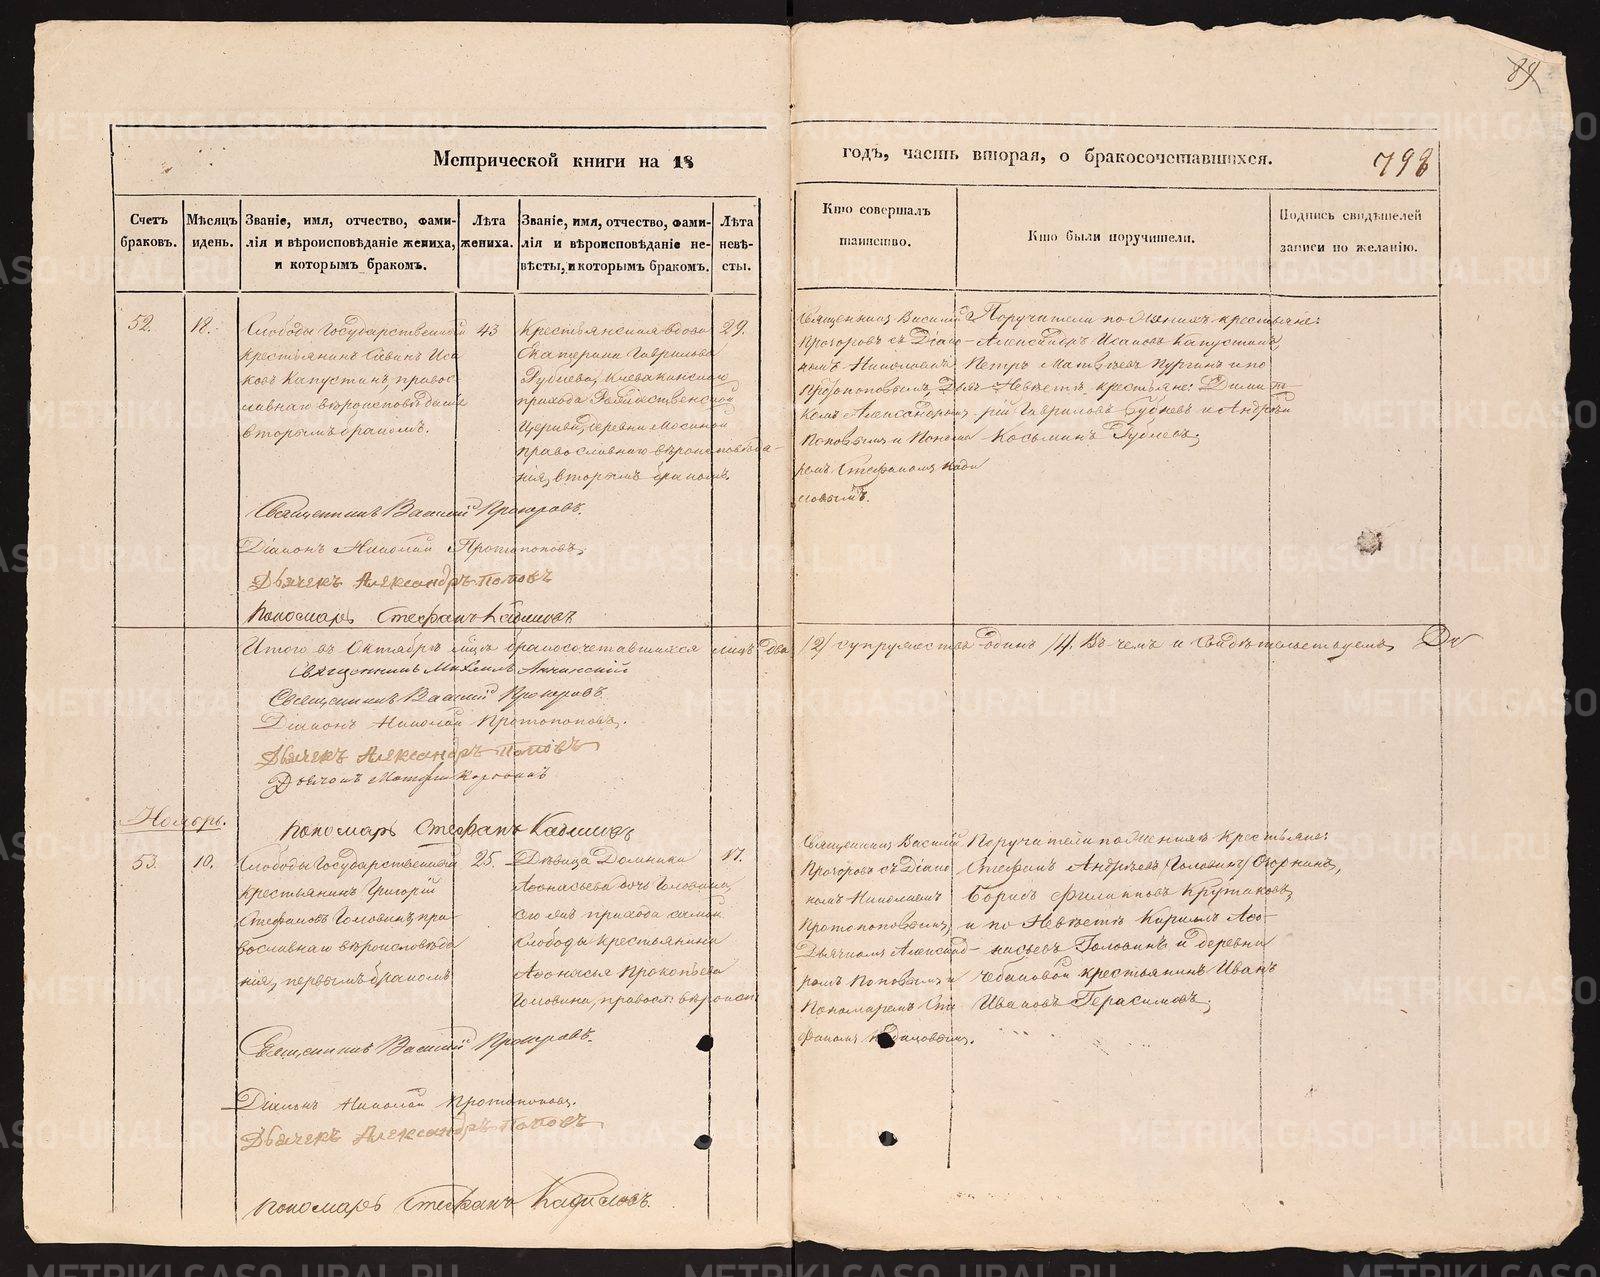 89
Метрической книги на 18
годъ, часть вторая, о бракосочетавшихся.
798
Счетъ браковъ.
Мѣсяцъ и день.
Званіе, имя, отчество, фами-
лія и вѣроисповѣданіе жениха,
и которымъ бракомъ.
Лѣта
жениха.
Званіе, имя, отчество, фами-
лія и вѣроисповѣданіе не-
вѣсты, и которымъ бракомъ.
Лѣта
невѣ-
сты.
Кто совершалъ
таинство.
Кто были поручители.
Подпись свидѣтелей
записи по желанію.
52.
18.
Слободы Государственный
крестьянинъ Савинъ Иса
ковъ Капустинъ, право-
славнаго вѣроисповѣданія
вторымъ бракомъ.
43
Крестьянская вдова
Екатерина Гаврилова
прихода Рождественской
Церкви, деревни Мосиной
православнаго вѣроисповѣда-
нія, вторымъ бракомъ.
29.
Священникъ Василій
Прозоровъ съ Діако-
номъ Николаемъ
Протопоповымъ, Дья-
комъ Александромъ
Поповымъ и Понома
ремъ Стефаномъ Кади
ловымъ.
Поручители по Женихѣ крестьяне:
Александръ Исаковъ Капустинъ,
Петръ Матвѣевъ Пургинъ и по
Невѣстѣ крестьяне: Димит-
рій Гавриловъ и Андрей
Косьминъ
Священникъ Василій Прозоровъ.
Діаконъ Николай Протопоповъ.
Дьячекъ Александръ Поповъ
Пономарь Стефанъ Кадиловъ
Итого въ Октябрѣ м-цѣ бракосочетавшихся лицъ два /2/ супружества одинъ /1/. Въ чемъ и Свидѣтельствуемъ
Священникъ Михаилъ
Священникъ Василій Прозоровъ
Діаконъ Николай Протопоповъ.
Дьячекъ Александръ Поповъ
Пономарь Стефанъ Кадиловъ
Ноябрь.
53.
10.
Слободы Государственный
крестьянинъ Григорій
Стефановъ Головинъ, пра-
вославнаго вѣроисповѣда
нія, первымъ бракомъ
25.
Дѣвица Домника
Аѳонасьева дочь Головина,
сего же прихода самой
Слободы крестьянина
Аѳонасья Прокопьева
Головина, правосл. вѣроисп.
17.
Священникъ Василій
Прозоровъ съ Діако
номъ Николаемъ
Протопоповымъ,
Дьячкомъ Александ-
ромъ Поповымъ и
Пономаремъ Сте-
фаномъ Кадиловымъ.
Поручители по Женихѣ Крестьяне:
Стефанъ Андреевъ Головинъ,
Борисъ Филипповъ Крутаковъ,
и по Невѣстѣ Кирилъ Аѳо-
насьевъ Головинъ и деревни
Чебаковой крестьянинъ Иванъ
Ивановъ Герасимовъ.
Священникъ Василій Прозоровъ.
Діаконъ Николай Протопоповъ.
Дьячекъ Александръ Поповъ
Пономарь Стефанъ Кадиловъ.
METRIKI.GASO-URAL.RU